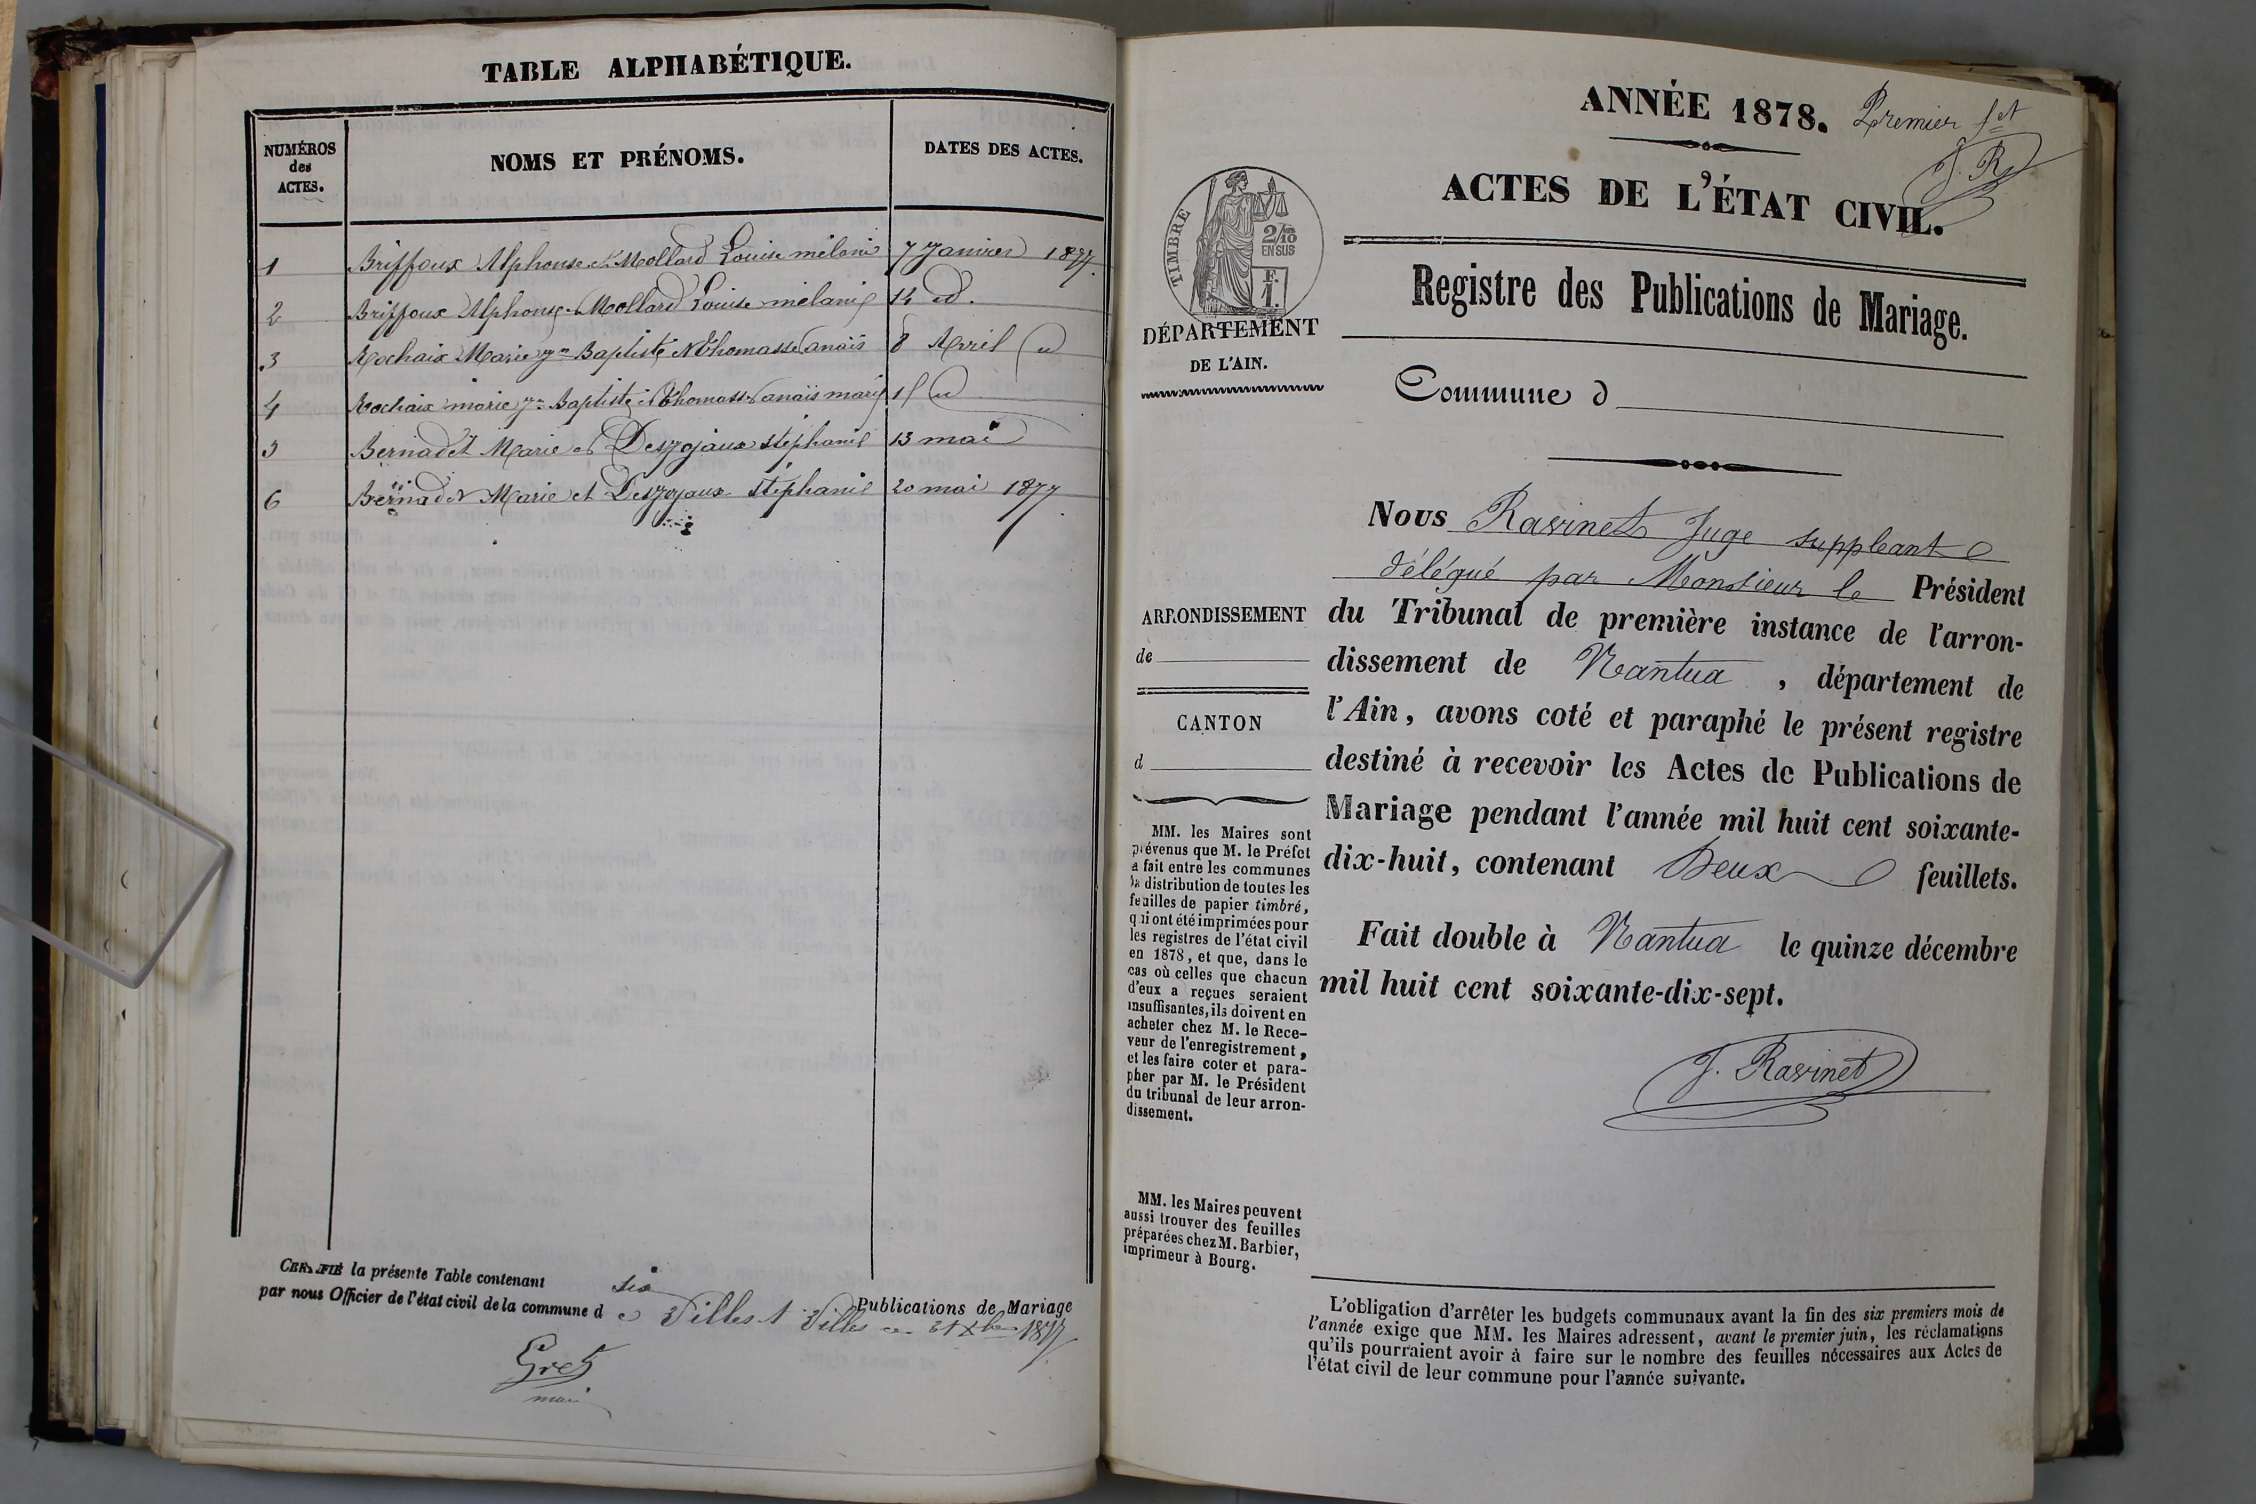 TABLE ALPHABÉTIQUE.
NUMÉROS des ACTES. NOMS ET PRÉNOMS. DATES DES ACTES.
1 Briffoux Alphonse et Mollard Louise mélanie 7 Janvier 1877.
2 Briffoux Alphonse et Mollard Louise mélanie 14 id.
3 Rochaix Marie Jn Baptiste et Thomasset anaïs 8 Avril id
4 Rochaix marie Jn Baptiste et Thomasset anaïs marie 15 id
5 Bernadet Marie et Desjojaux stéphanie 13 mai
6 Bernadet Marie et Desjojaux stéphanie 20 mai 1877
CERTIFIÉ la présente Table contenant six Publications de Mariage
par nous Officier de l'état civil de la commune de Villes. Villes ce 31 Xbre 1877.
Gret
maire
ANNÉE 1878. Premier fet
J. R.
ACTES DE L'ÉTAT CIVIL.
TIMBRE
2/10 EN SUS
F. 1.
Registre des Publications de Mariage.
DÉPARTEMENT
DE L'AIN.
Commune d
Nous Ravinet Juge suppleant
délégué par Monsieur le Président
du Tribunal de première instance de l'arron-
dissement de Nantua, département de
l'Ain, avons coté et paraphé le présent registre
destiné à recevoir les Actes de Publications de
Mariage pendant l'année mil huit cent soixante-
dix-huit, contenant Deux feuillets.
Fait double à Nantua le quinze décembre
mil huit cent soixante-dix-sept.
J. Ravinet
ARRONDISSEMENT
de
CANTON
d
MM. les Maires sont
prévenus que M. le Préfet
a fait entre les communes
la distribution de toutes les
feuilles de papier timbré,
qui ont été imprimées pour
les registres de l'état civil
en 1878, et que, dans le
cas où celles que chacun
d'eux a reçues seraient
insuffisantes, ils doivent en
acheter chez M. le Rece-
veur de l'enregistrement,
et les faire coter et para-
pher par M. le Président
du tribunal de leur arron-
dissement.
MM. les Maires peuvent
aussi trouver des feuilles
préparées chez M. Barbier,
imprimeur à Bourg.
L'obligation d'arrêter les budgets communaux avant la fin des six premiers mois de
l'année exige que MM. les Maires adressent, avant le premier juin, les réclamations
qu'ils pourraient avoir à faire sur le nombre des feuilles nécessaires aux Actes de
l'état civil de leur commune pour l'année suivante.